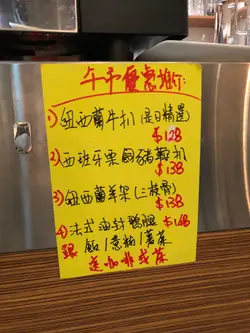 午市優惠推介:
1) 紐西蘭牛扒 是日精選
$128
2) 西班牙栗飼豬鞍扒
$138
3) 紐西蘭羊架 (三枝骨)
$138
4) 法式油封鴨腿 $148
跟 飯/意粉/薯菜
送咖啡或茶